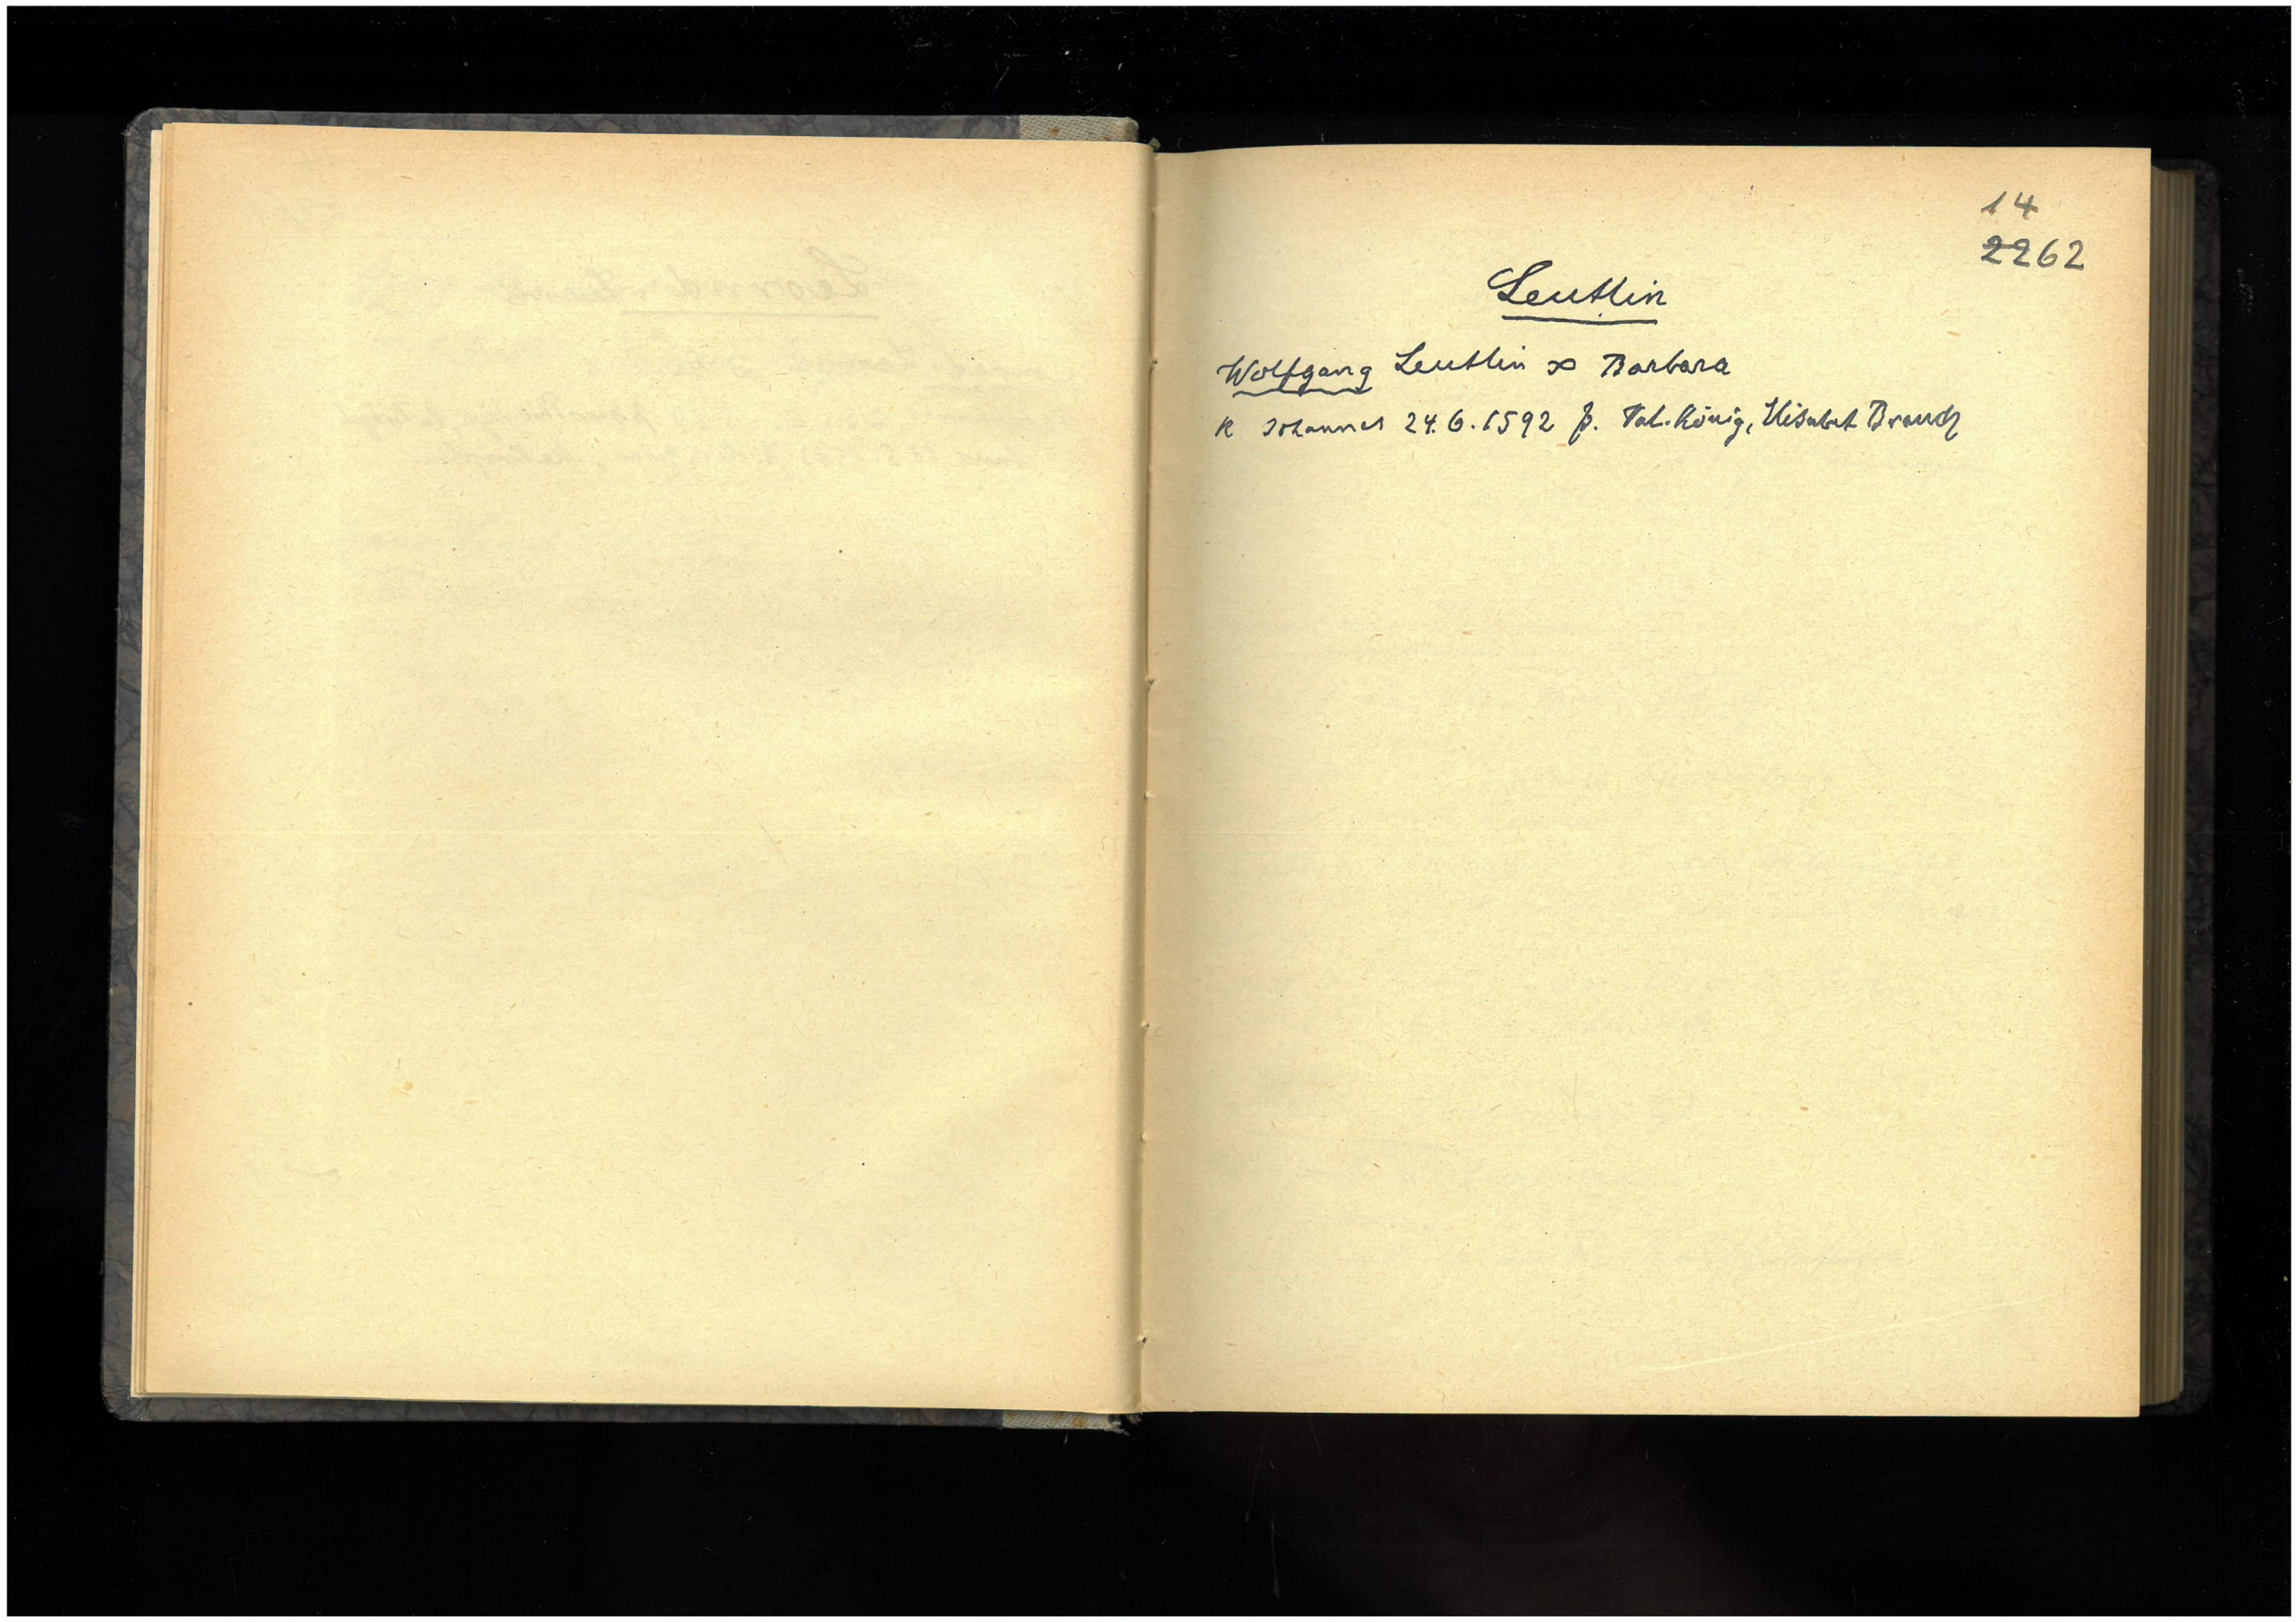 14
2262
Leutlin
Wolfgang Leutlin ∞ Barbara
K Johannes 24.6.1592 p. Val. König, Elisabet Brauch